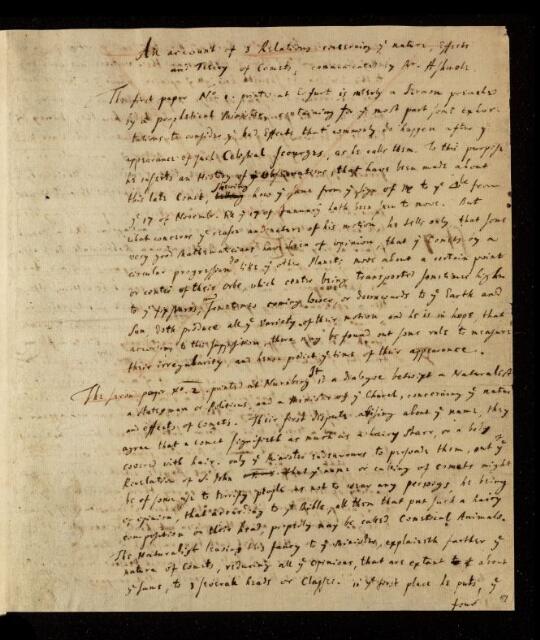 An account of 3 Relations concerning yͤ nature, Effects
and Theory of Comets, communicated by Mr. Ashmole
The first paper No. 1. printed at Erfurt is merely a Sermon preached
by a prophetical Minister, containing for yͤ most part some exhor-
tations to consider yͤ bad Effects that commonly do happen after yͤ
appearance of such Celestial Scourges, as he calls them. To this purpose
he inserts an History of yͤ observations, that have been made about
this late Comet, shewing how yͤ same from yͤ of to yͤ from
yͤ 17 of Novemb. till yͤ 17 of January hath been seen to move. But
what concerns yͤ cause and nature of his motion, he tells only that some
very good Mathematicians have been of opinion, that yͤ Comets by a
circular progression do like yͤ other Planets move about a certain point
or center of their Orbs, which center being transported sometimes higher
to yͤ fixt stars, sometimes coming lower, or downwards to yͤ Earth and
Sun doth produce all yͤ variety of their motion, and he is in hope, that
according to this supposition, there may be found out some rule to measure
their irregularity and hence predict yͤ time of their appearance.
The second paper No. 2. printed at Nurnberg is a dialogue betwixt a Naturalist
a Statesman or Politicus, and a Minister of yͤ Church, concerning yͤ nature
and effects of Comets. Their first dispute arising about yͤ name, they
agree that a comet signifieth as much as a hairy Starr, or a body
covered with hair. only yͤ Minister endeavours to persuade them, out yͤ
Revelation of St. John that yͤ name or calling of comets might
be of some use to terrify people as not to wear any perwigs, he being
of opinion, that according to yͤ Bible, all them that put such a hairy
composition on their head, properly may be called Cometical Animals.
The Naturalist leaving this fancy to yͤ Minister, explaineth farther yͤ
nature of Comets, reducing all yͤ opinions, that are extant about
yͤ same, to 3 several heads or Classes. in yͤ first place he puts, yͤ
four